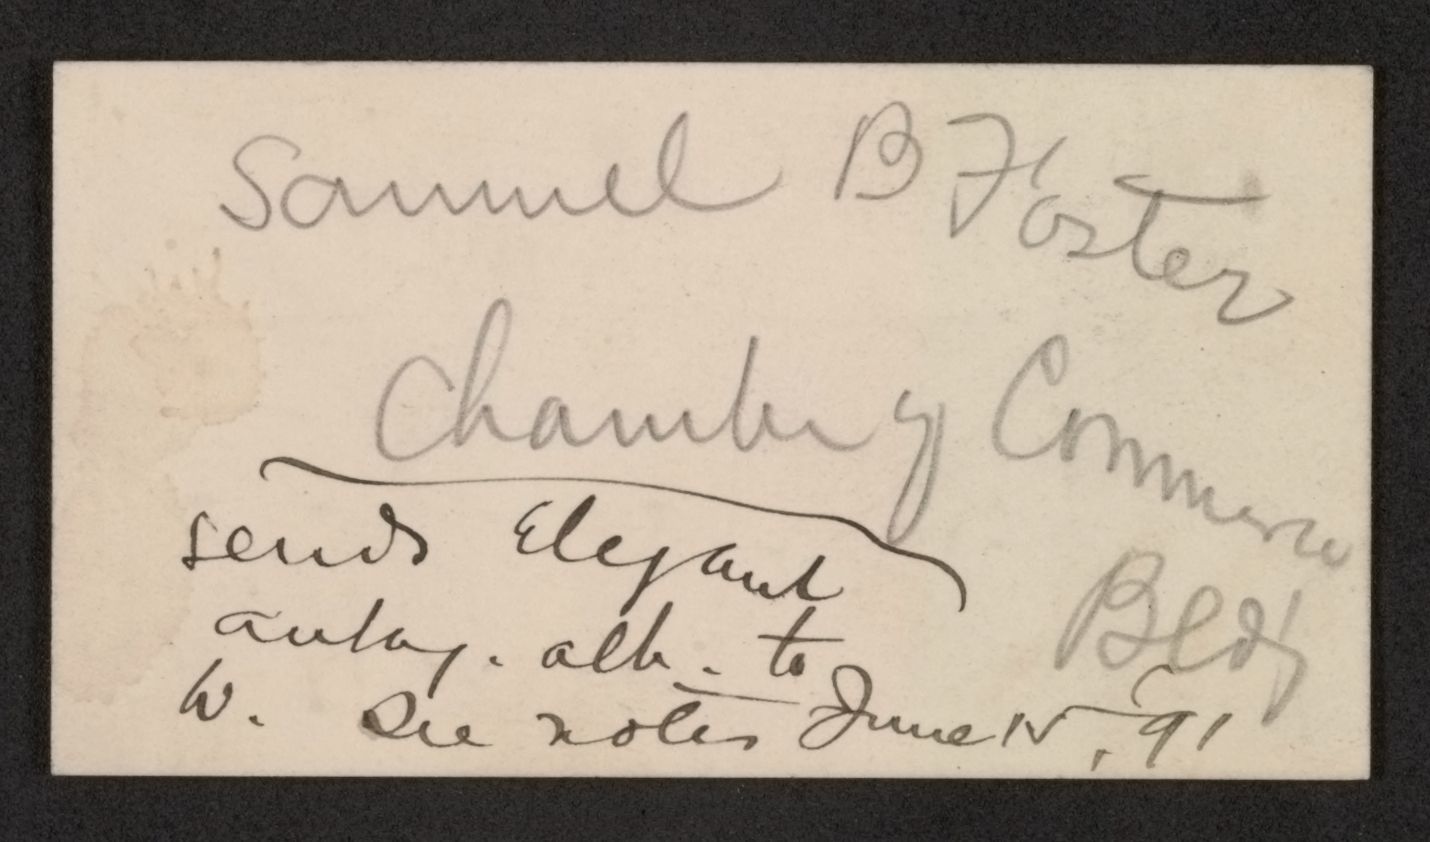 Samuel B Foster
Chamber of Commerce
Bldg
sends Elegant
autog. alb. to
W. See notes June 15, 91